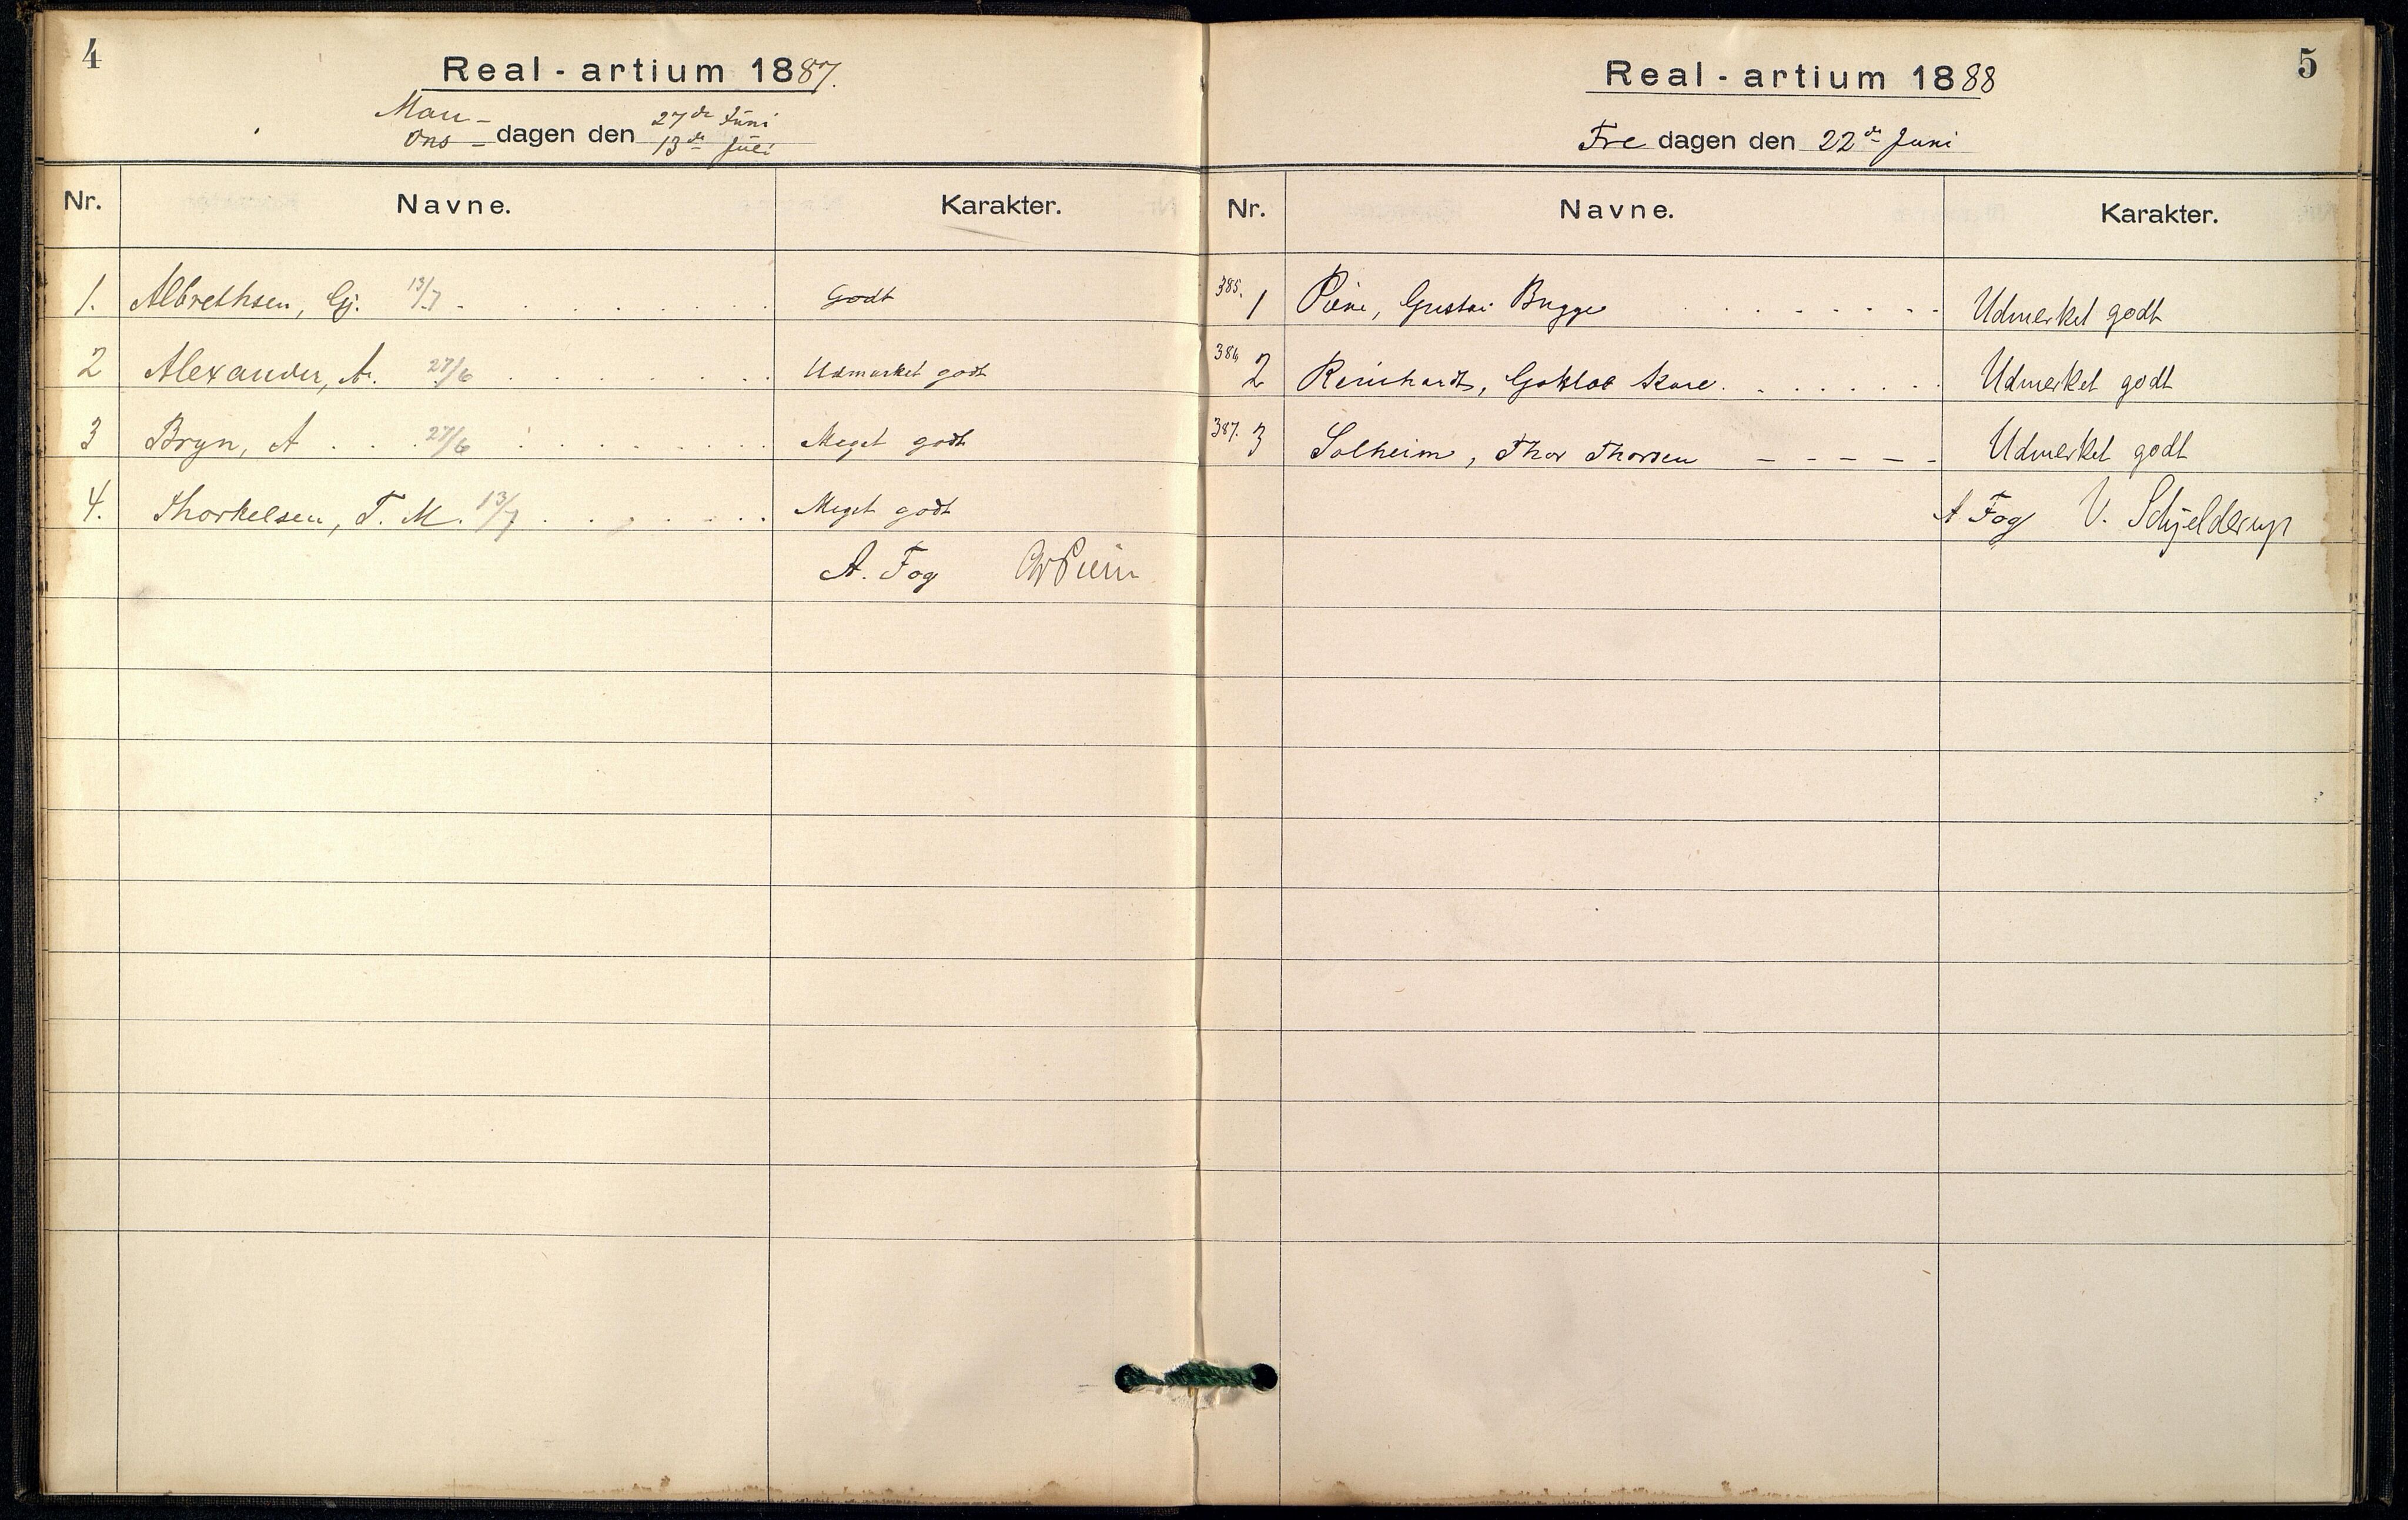 4
Real-artium 1887.
Man- 27de Juni
Ons-dagen den 13de Juli
Nr. Navne. Karakter.
1. Albrethsen, Gj. 13/7 Godt
2 Alexander, A. 27/6 Udmærket godt
3 Bryn, A 27/6 Meget godt
4. Thorkelsen, T. M. 13/7 Meget godt
A. Fog
5
Real-artium 1888
Fre dagen den 22de Juni
Nr. Navne. Karakter.
385. 1 Piene, Gustav Bugge Udmerket godt
386 2 Reinhardt, Udmerket godt
387. 3 Solheim, Thor Thorsen Udmerket godt
A Fog V. Schjelderup